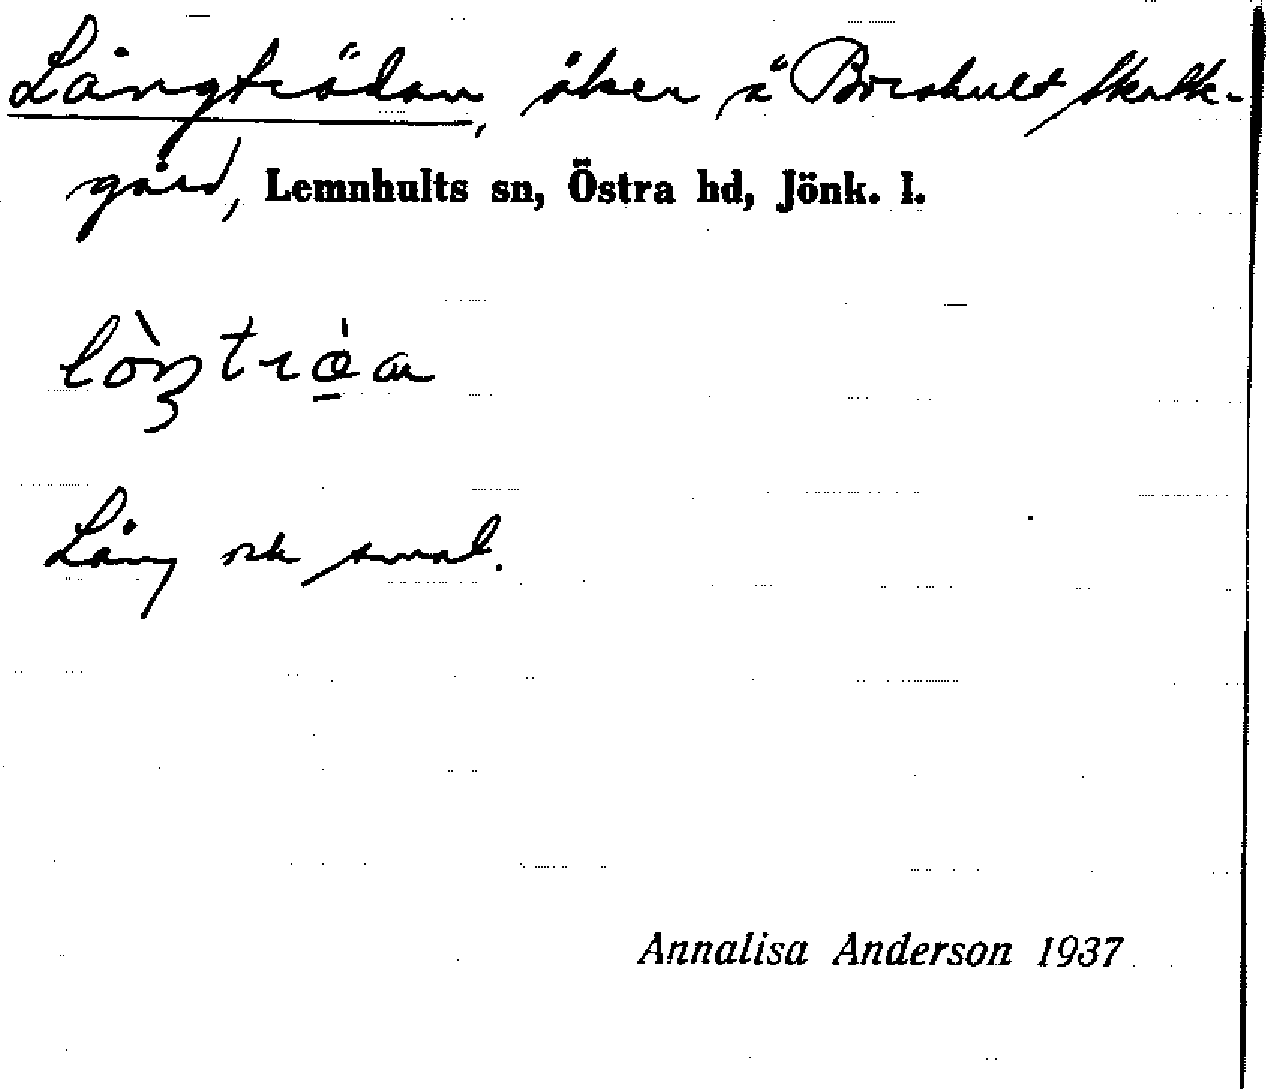 Långträdan, åker å Boeshult Skatte-
gård, Lemnhults sn, Östra hd, Jönk. l.
Lång och smal.
Annalisa Anderson 1937